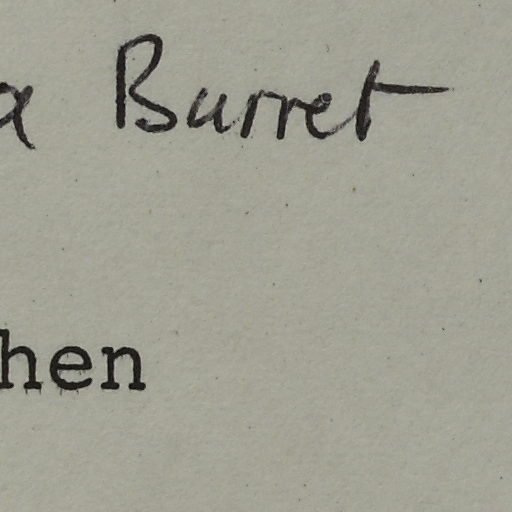 x Burret
hen